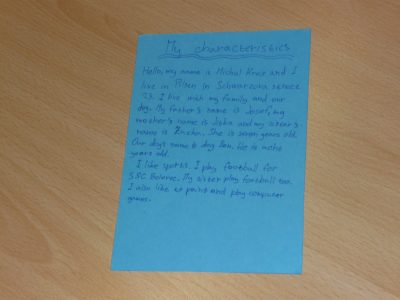 My characteristics
Hello, my name is Michal and I
live in Pilsen in
23. I live with my family and our
dog. My father's name is Josef, my
mother's name is and my sister's
name is Zuzka. She is seven years old.
Our dog's name is dog Ben. He is
years old.
I like sports. I play football for
My sister play football too.
I also like to paint and play computer
games.